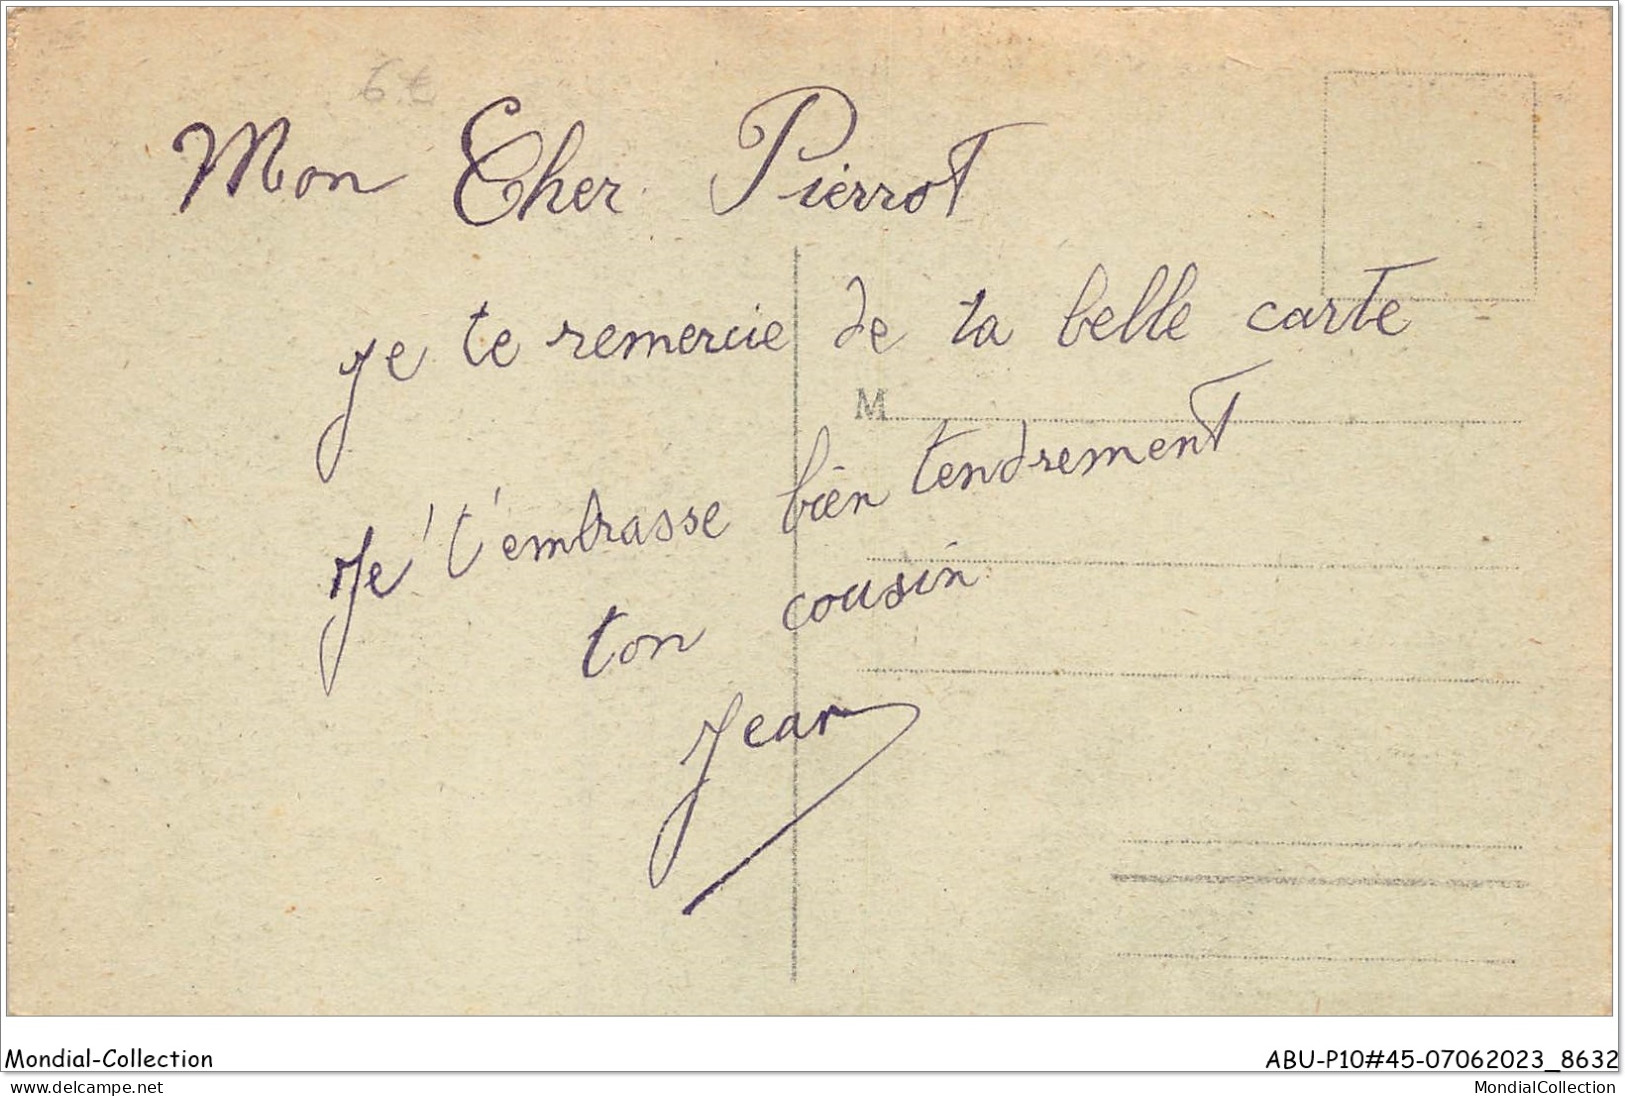 6.€
Mon Cher Pierrot
je te remercie de ta belle carte
M
Je t'embrasse bien tendrement
ton cousin
Jean
Mondial-Collection
ABU-P10#45-07062023_8632
www.delcampe.net
MondialCollection